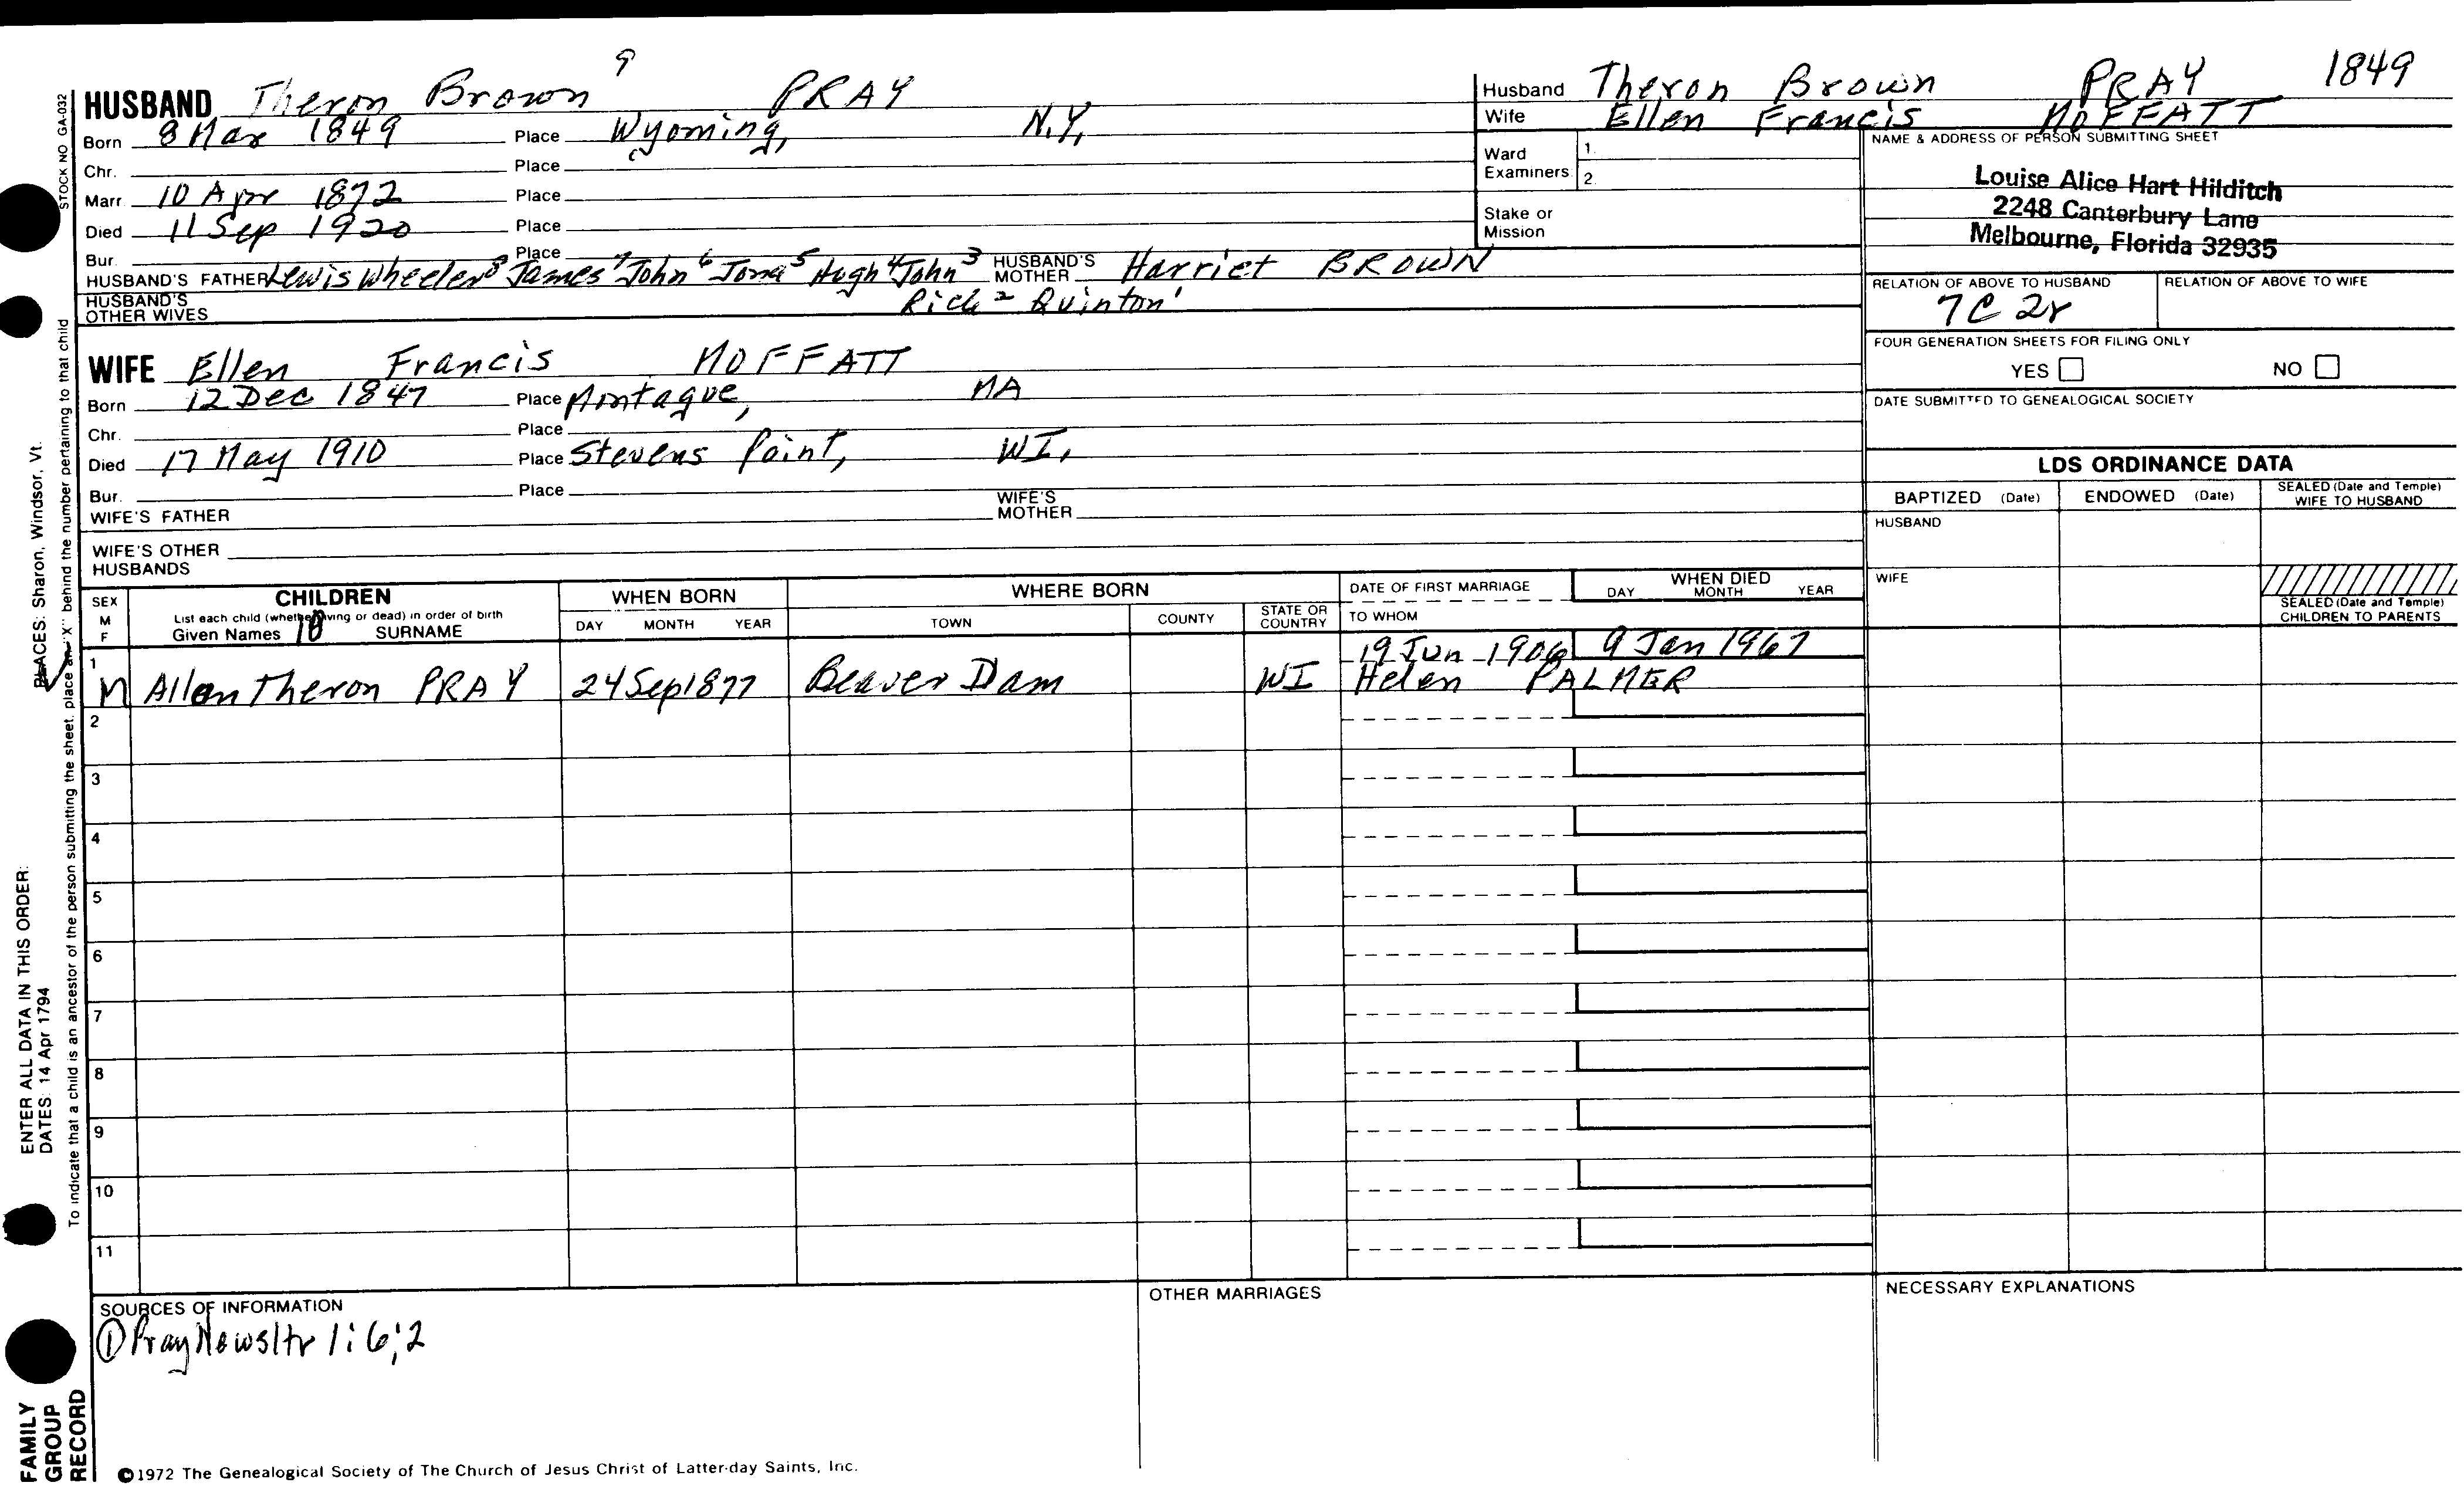 HUSBAND Theron Brown 9 PRAY
Born 8 Mar 1849 Place Wyoming, N.Y,
Chr. Place
Marr. 10 Apr 1872 Place
Died 11 Sep 1920 Place
Bur. Place
HUSBAND'S FATHER Lewis Wheeler 8 James 7 John 6 Jona 5 Hugh 4 John 3 HUSBAND'S MOTHER Harriet BROWN
HUSBAND'S OTHER WIVES Rich 2 Quinton 1
WIFE Ellen Francis MOFFATT
Born 12 Dec 1847 Place Montague, MA
Chr. Place
Died 17 May 1910 Place Stevens Point, WI,
Bur. Place
WIFE'S FATHER WIFE'S MOTHER
WIFE'S OTHER HUSBANDS
Husband Theron Brown PRAY 1849
Wife Ellen Francis MOFFATT
Ward Examiners 1. 2.
Stake or Mission
NAME & ADDRESS OF PERSON SUBMITTING SHEET
Louise Alice Hart Hilditch
2248 Canterbury Lane
Melbourne, Florida 32935
RELATION OF ABOVE TO HUSBAND RELATION OF ABOVE TO WIFE
7C 2r
FOUR GENERATION SHEETS FOR FILING ONLY
YES NO
DATE SUBMITTED TO GENEALOGICAL SOCIETY
LDS ORDINANCE DATA
BAPTIZED (Date) ENDOWED (Date) SEALED (Date and Temple) WIFE TO HUSBAND
HUSBAND
WIFE
SEALED (Date and Temple) CHILDREN TO PARENTS
SEX M F
CHILDREN
List each child (whether living or dead) in order of birth
Given Names 10 SURNAME
WHEN BORN
DAY MONTH YEAR
WHERE BORN
TOWN COUNTY STATE OR COUNTRY
DATE OF FIRST MARRIAGE
TO WHOM
WHEN DIED
DAY MONTH YEAR
1 19 Jun 1906 9 Jan 1967
M Allan Theron PRAY 24 Sep 1877 Beaver Dam WI Helen PALMER
2
3
4
5
6
7
8
9
10
11
SOURCES OF INFORMATION
① Pray Newsltr 1:6;2
OTHER MARRIAGES
NECESSARY EXPLANATIONS
©1972 The Genealogical Society of The Church of Jesus Christ of Latter-day Saints, Inc.
STOCK NO GA-032
To indicate that a child is an ancestor of the person submitting the sheet, place an "X" behind the number pertaining to that child
ENTER ALL DATA IN THIS ORDER:
DATES: 14 Apr 1794
PLACES: Sharon, Windsor, Vt.
FAMILY
GROUP
RECORD